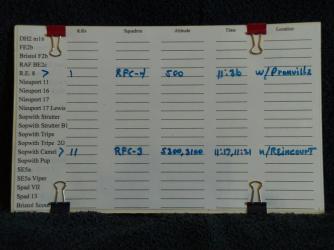 Kills Squadron Altitude Time Location
DH2 m16
FE2b
Bristol F2b
RAF BE2c
R.E. 8 > 1 RFC-4 500 11:36 w/Pronville
Nieuport 11
Nieuport 16
Nieuport 17
Nieuport 17 Lewis
Sopwith Strutter
Sopwith Strutter B1
Sopwith Tripe
Sopwith Tripe 2G
Sopwith Camel > 11 RFC-3 5300, 3100 11:17, 11:21 n/REincourT
Sopwith Pup
SE5a
SE5a Viper
Spad VII
Spad 13
Bristol Scout